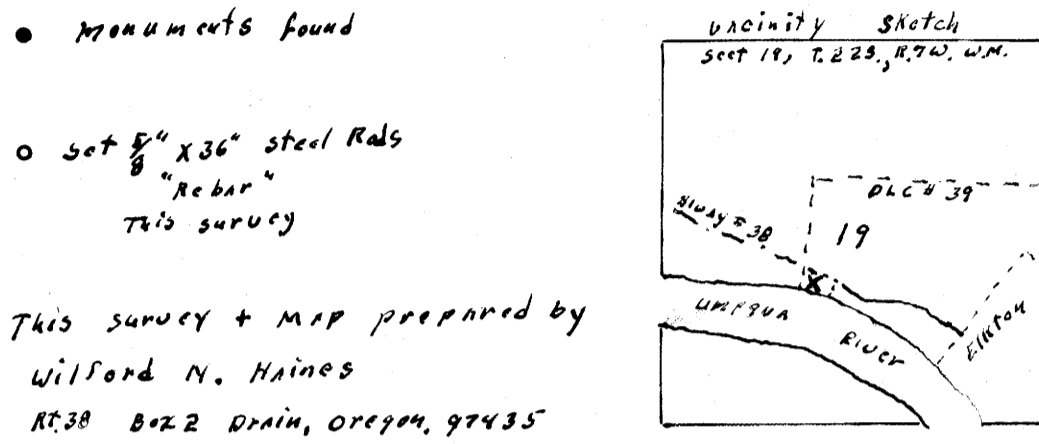 Monuments found
Set 5/8" x 36" steel Rods
"Rebar"
This survey
This survey + Map prepared by
Wilford N. Haines
Rt. 38 Box 2 Drain, Oregon, 97435
Vicinity Sketch
Sect 19, T. 22S., R. 7W. W.M.
DLC # 39
Hiway # 38
19
X
Umpqua
River
Elkton